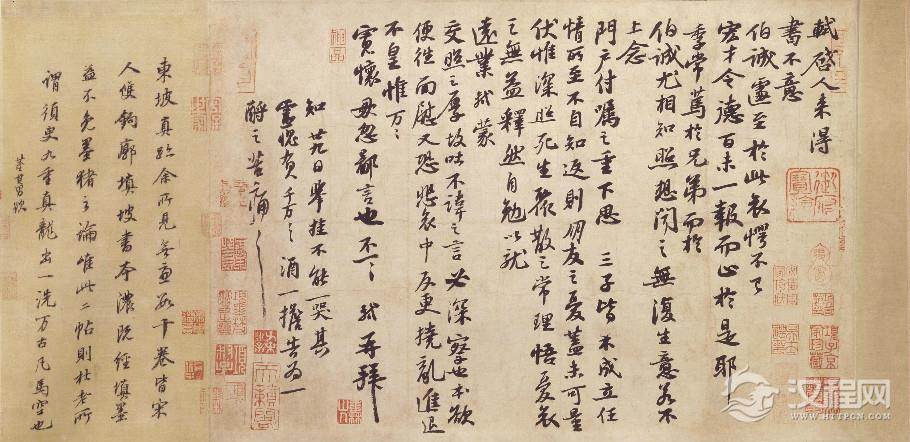 軾啓人來得
書不意
伯誠遽至於此哀愕不已
宏才令德百未一報而止於是耶
季常篤於兄弟而於
伯誠尤相知照想聞之無復生意若不
上念
門戶付囑之重下思三子皆不成立任
情所至不自知返則朋友之憂蓋未可量
伏惟深照死生聚散之常理悟憂哀
之無益釋然自勉以就
遠業軾蒙
交照之厚故吐不諱之言必深察也本欲
便往面慰又恐悲哀中反更撓亂進退
不皇惟万万
寬懷毋忽鄙言也不一一軾再拜
知廿九日舉挂不能一哭其
靈愧負千万千万酒一擔告為一
酹之苦痛苦痛
東坡真跡余所見無慮數十卷皆宋
人雙鉤廓填坡書本濃既經填墨
益不免墨豬之論唯此二帖則杜老所
謂須臾九重真龍出一洗万古凡馬空也
董其昌跋
汉程网
WWW.HTTPCN.COM